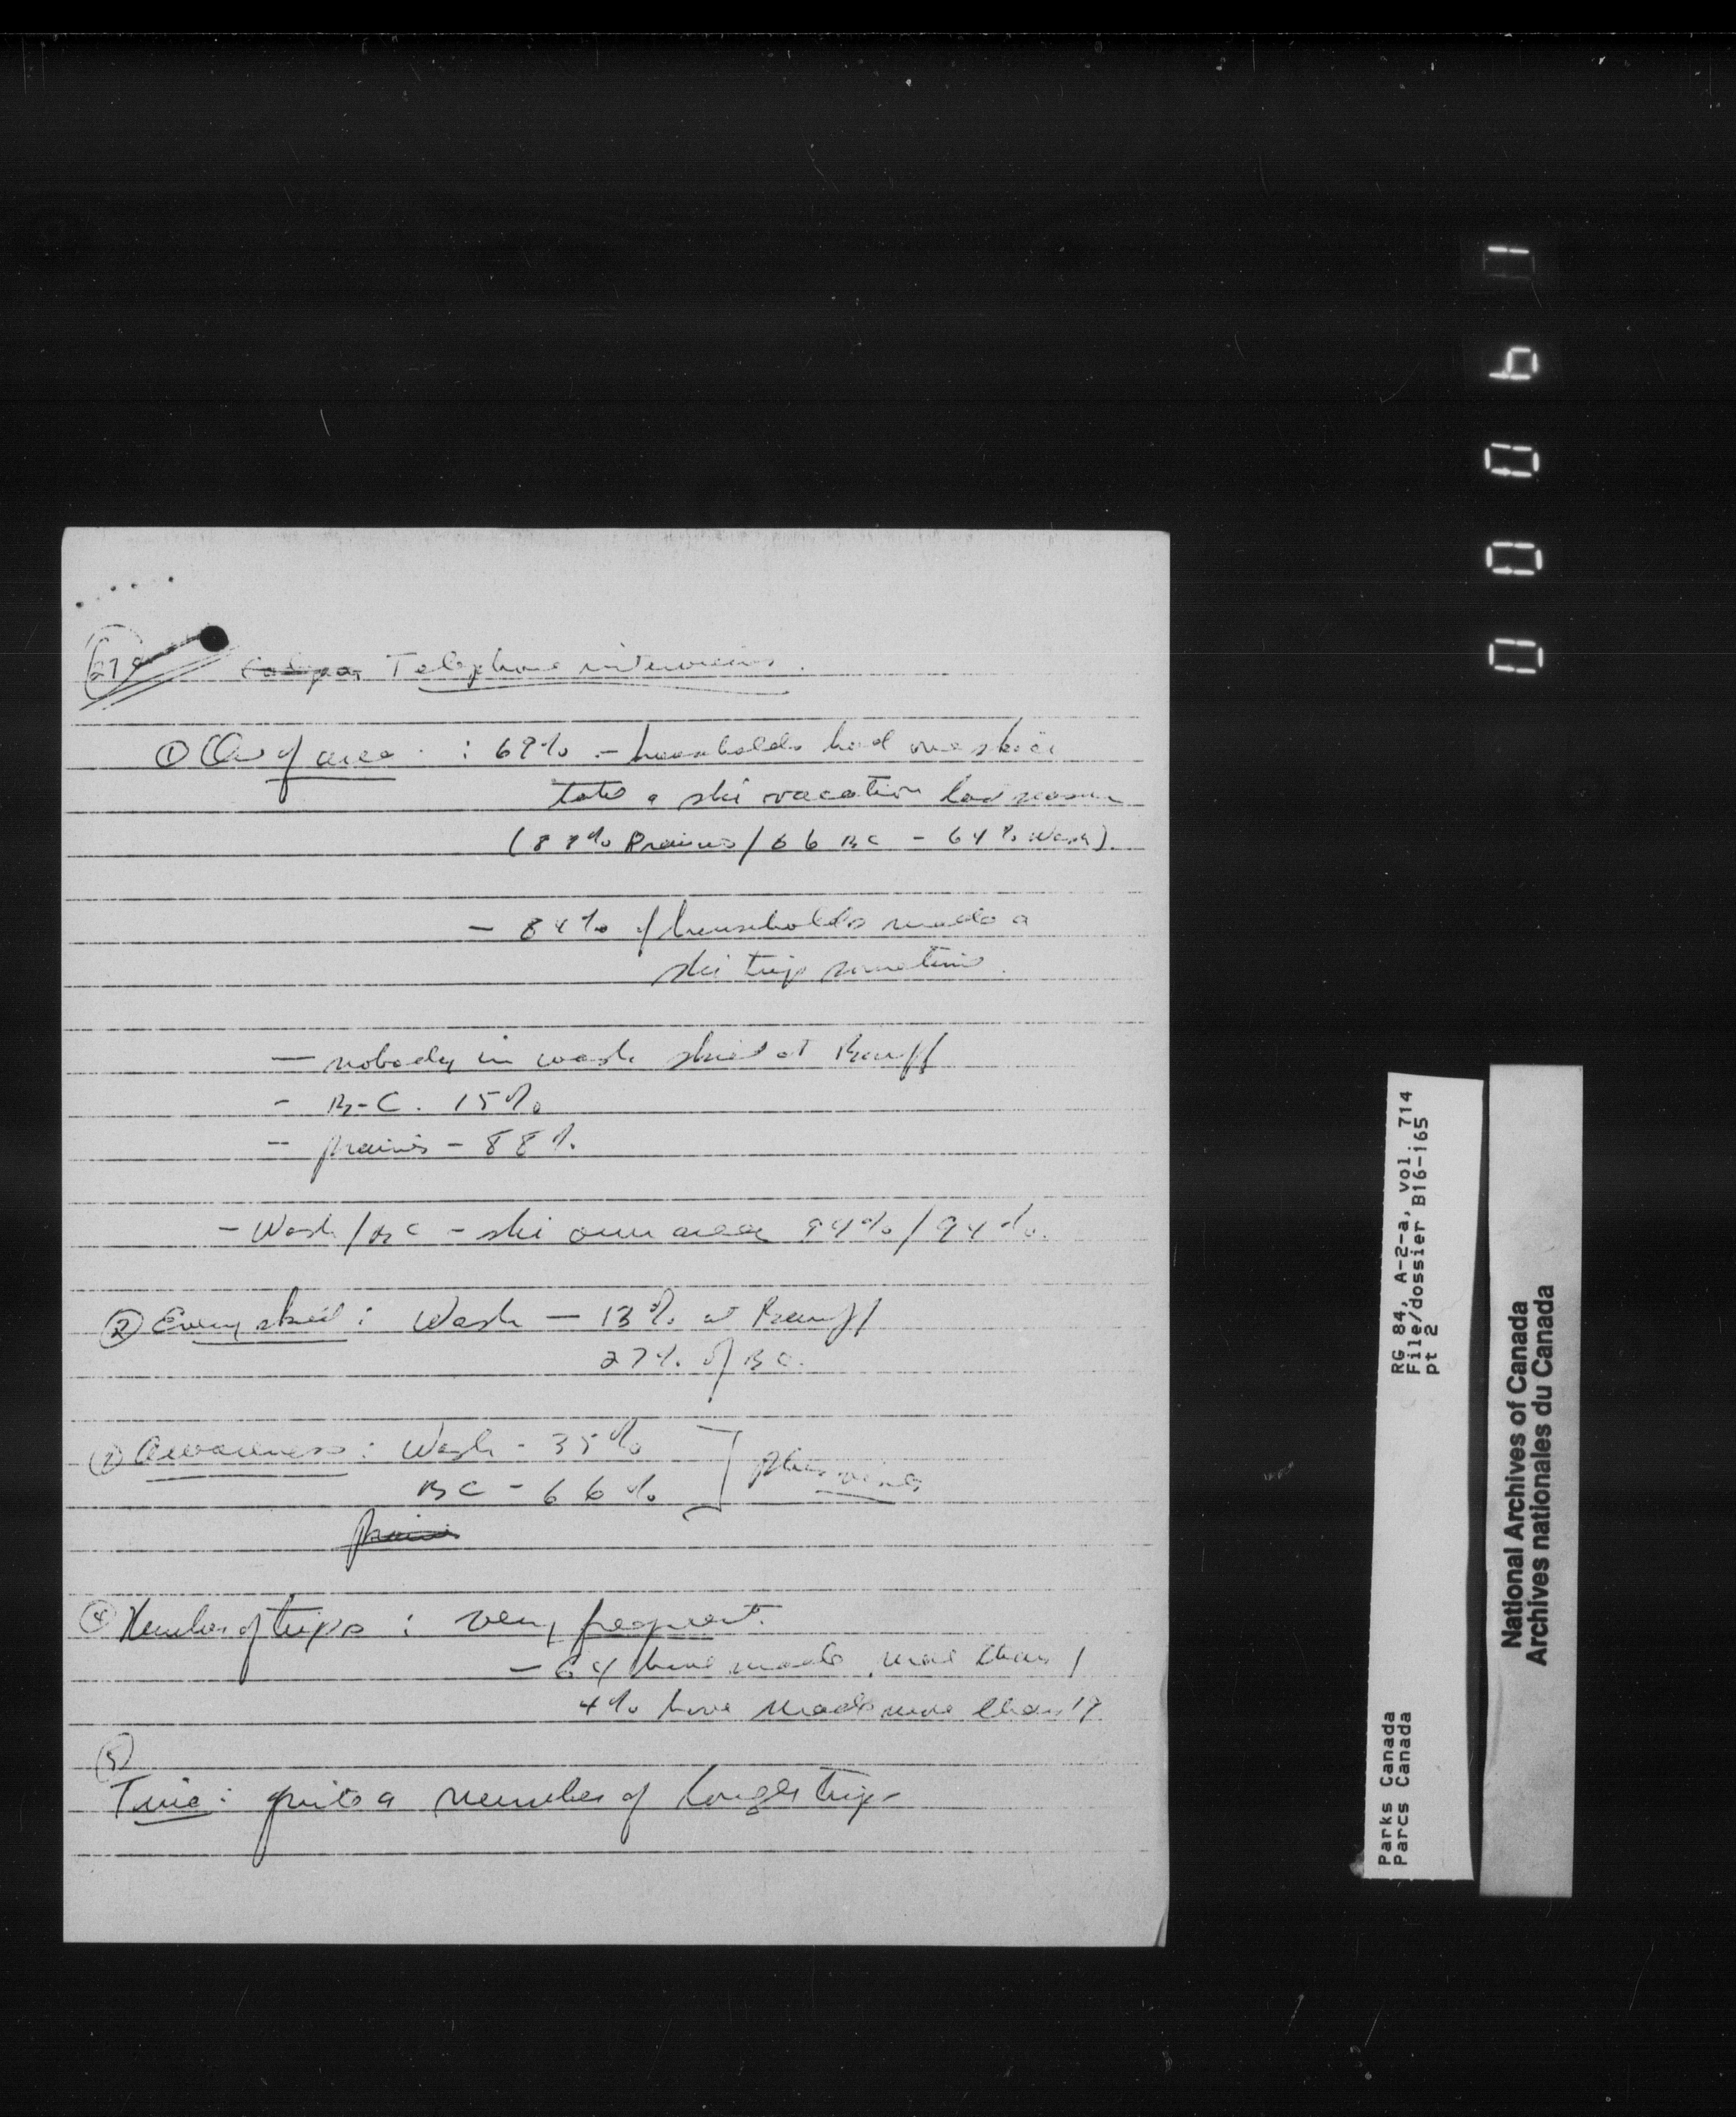 Telephone interviews.
① Out of area : 69% - households had one skier
take a ski vacation last season
(88% Prairies / 66 BC - 64% Wash).
- 84% of households made a
ski trip sometime.
- nobody in wash skied at Banff
- B-C. 15%
- prairies - 88%
- Wash / BC - ski own area 94% / 94%.
② Every skied : Wash - 13% at Banff
27% of BC.
Awareness : Wash - 35%
BC - 66%
prairies
④ Number of trips : very frequent.
- 64 have made more than 1
4% have made more than 19
5
Time : quite a number of longer trips
00061
RG 84, A-2-a, vol. 714
File/dossier B16-165
pt 2
Parks Canada
Parcs Canada
National Archives of Canada
Archives nationales du Canada